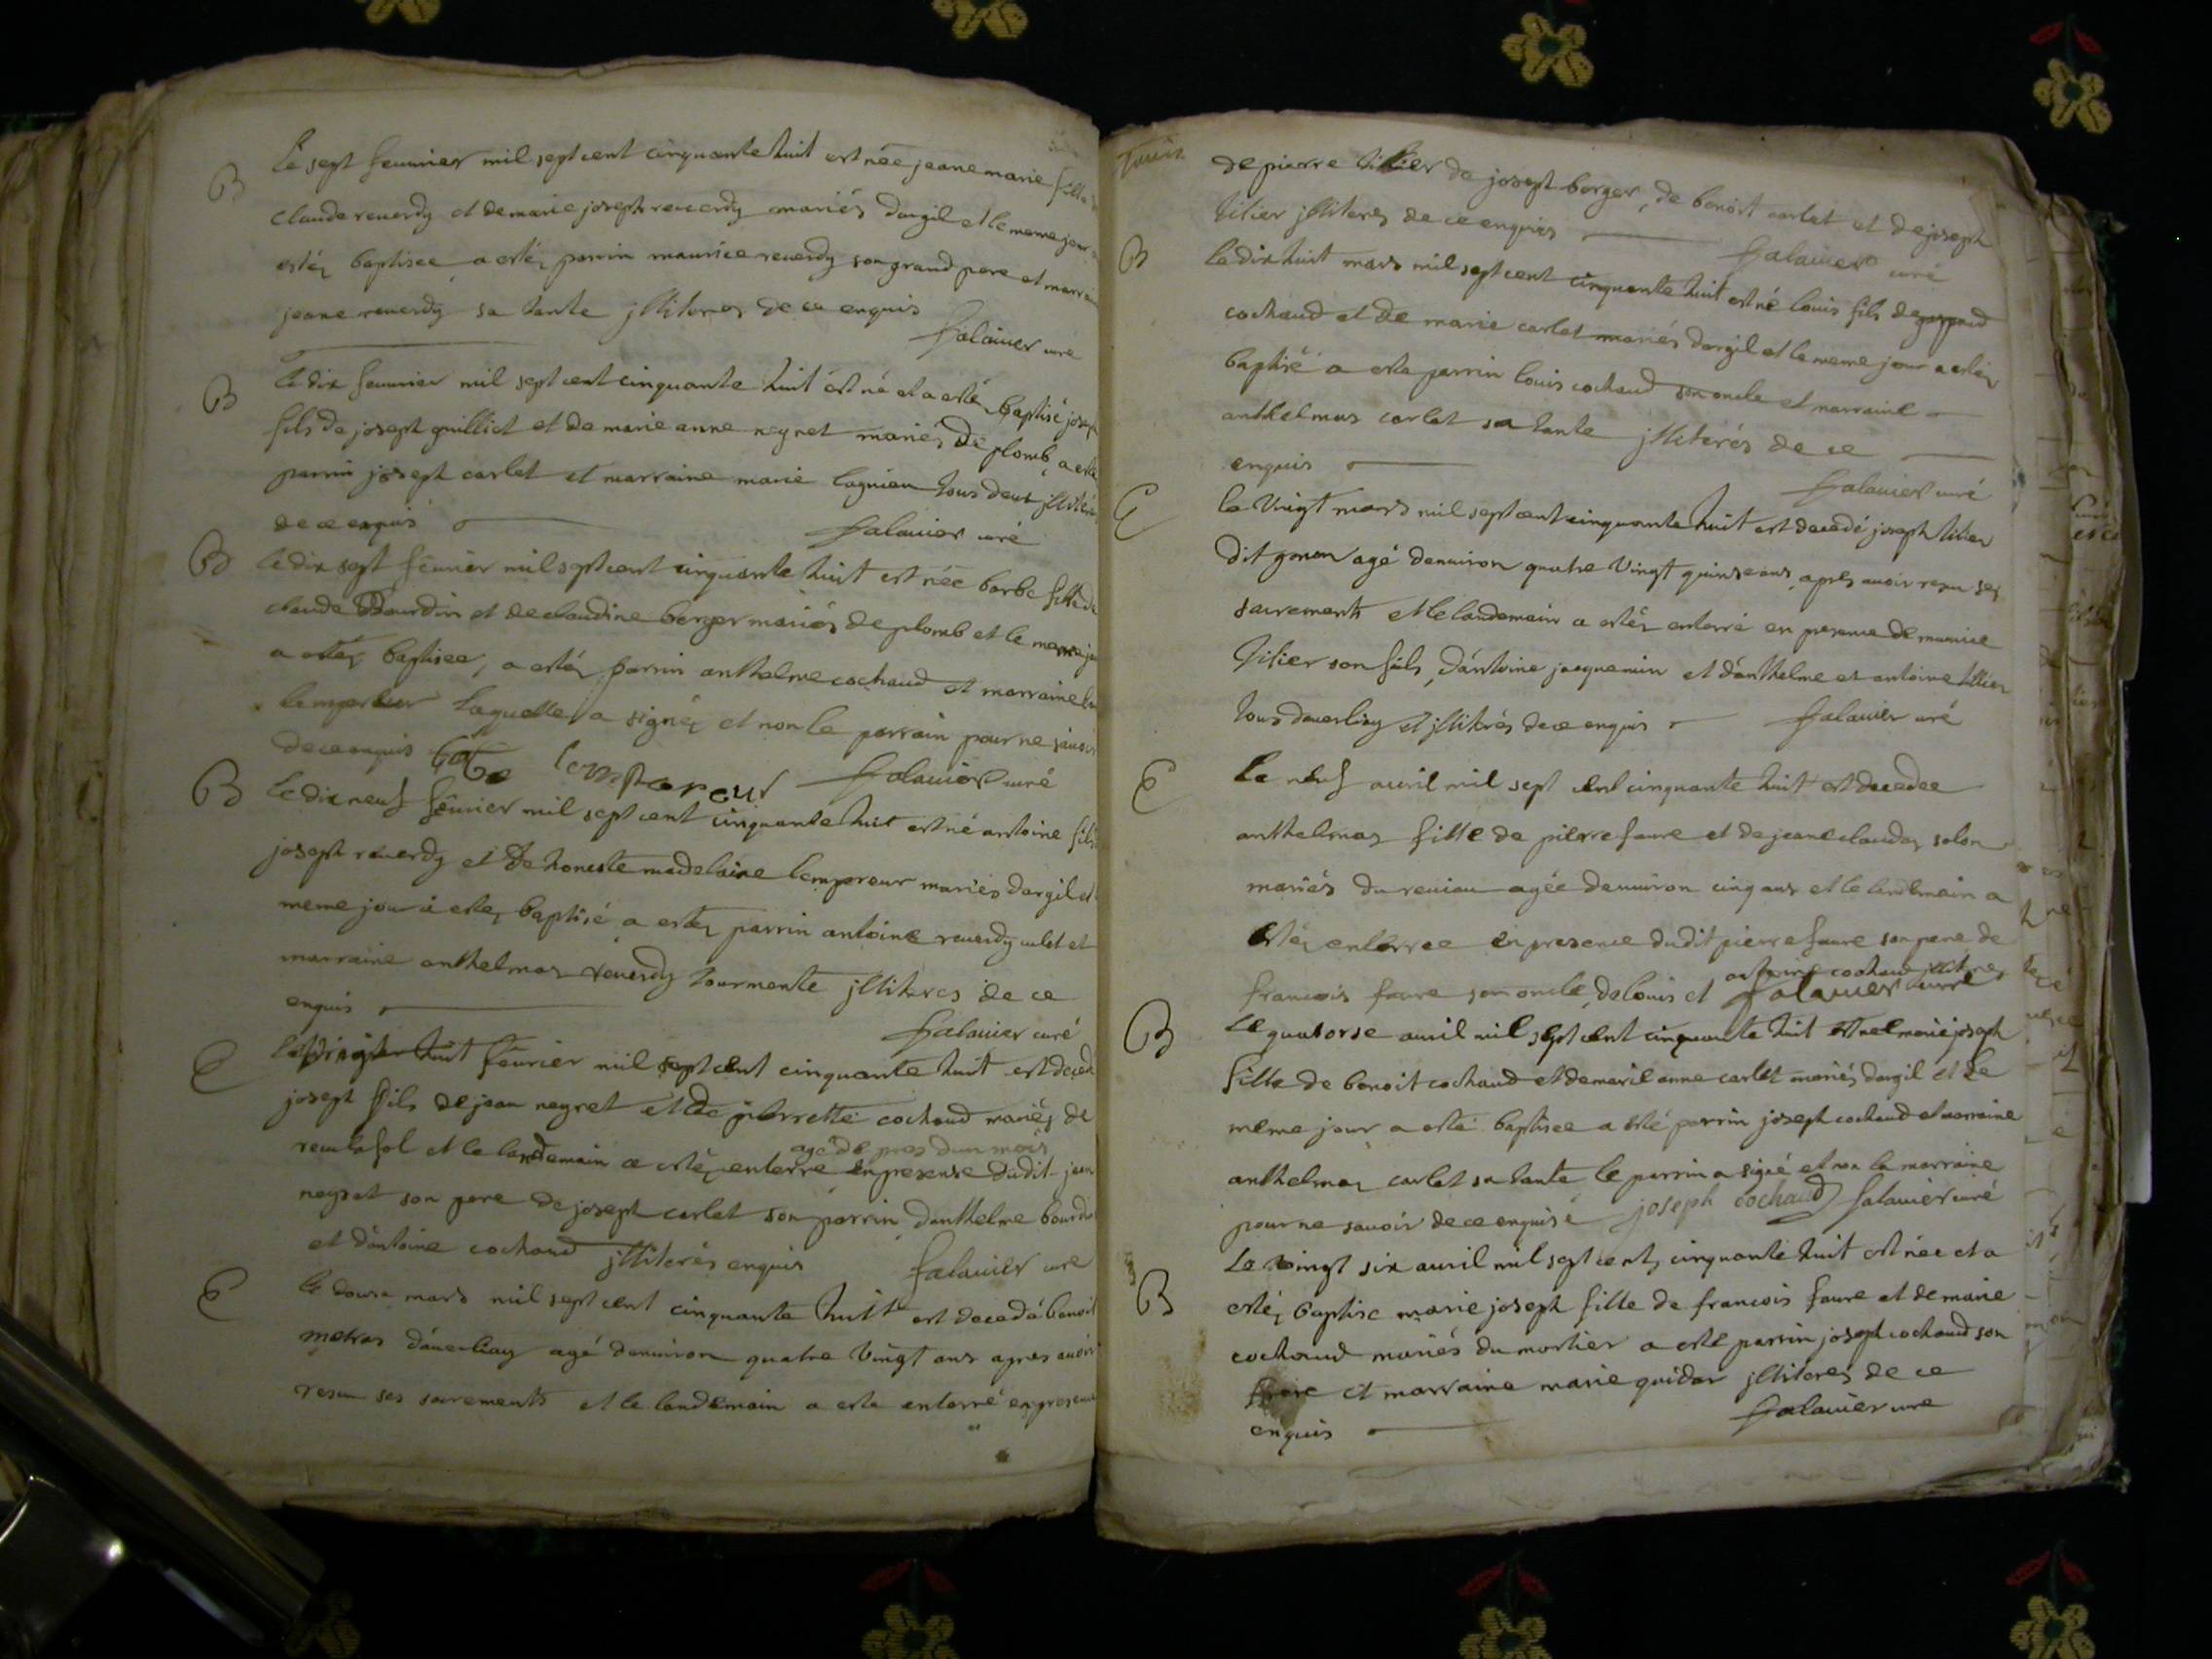 B
Le sept feuurier mil sept cent cinquante huit est née jeane marie fille de
claude reuerdy et de marie joseph reuerdy mariés dargil et le meme jour a
estéz baptisee a estéz parrin maurice reuerdy son grand pere et marraine
jeane reuerdy sa tante jlliteres de ce enquis
falauier curé
B
Le dix feuurier mil sept cent cinquante huit est né et a esté baptisé joseph
fils de joseph guilliet et de marie anne neyret mariés de plomb, a esté
parrin joseph carlet et marraine marie lagnieu tous deux jlliterés
de ce enquis
falauier curé
B
Le dix sept feurier mil sept cent cinquante huit est née barbe fille de
claude Bourdin et de claudine berger mariés de plomb et le meme jour
a estéz baptisee, a estéz parrin anthelme cochaud et marraine
lempereur laquelle a signéz et non le parrain pour ne sauoir
de ce enquis lempereur falauier curé
B
Le dix neuf feurier mil sept cent cinquante huit est né antoine fils
joseph reuerdy et de honeste madelaine lempereur mariés dargil et
meme jour a estéz baptisé a estéz parrin antoine reuerdy culet et
marraine anthelmaz reuerdy tourmente jlliteres de ce
enquis
falauier curé
E
Le vingt huit feurier mil sept cent cinquante huit est decedé
joseph fils de jean neyret et de pierrette cochaud mariés de
agé de pres dun mois
et le landemain a estéz enterré en presense dudit jean
neyret son pere de joseph carlet son parrin danthelme bourdin
et dantoine cochaud jlliterés enquis falauier curé
E
Le douse mars mil sept cent cinquante huit est decedé benoit
metras dauerliaz agé denuiron quatre vingt ans apres auoir
resu ses sacrements et le landemain a esté enterré en presence
de pierre tillier de joseph berger, de benoit carlet et de joseph
tilier jlliteres de ce enquis
falauier curé
B
Le dix huit mars mil sept cent cinquante huit est né louis fils de
cochaud et de marie carlet mariés dargil et le meme jour a estéz
baptisé a esté parrin louis cochaud son oncle et marraine
anthelmaz carlet sa tante jlliterés de ce
enquis
falauier curé
E
Le vingt mars mil sept cent cinquante huit est decedé joseph tilier
dit agé denuiron quatre vingt quinse ans, apres auoir resu ses
sacrements et le landemain a estéz enterré en presence de maurice
tilier son fils, dantoine jacquemin et danthelme et antoine tillier
tous dauerliaz et jlliterés de ce enquis falauier curé
E
Le neuf auril mil sept cent cinquante huit est decedee
anthelmaz fille de pierre faure et de jeane claudaz solon
mariés du reuieu agée denuiron cinq ans et le lendemain a
estéz enterree en presence dudit pierre faure son pere de
francois faure son oncle, de louis et antoine cochaud jlliteres
falauier curé
B
Le quatorse auril mil sept cent cinquante huit est nee marie joseph
fille de benoit cochaud et de marie anne carlet mariés dargil et le
meme jour a esté baptisee a esté parrin joseph cochaud et marraine
anthelmaz carlet sa tante le parrin a signé et non la marraine
pour ne sauoir de ce enquise joseph cochaud falauier curé
B
Le vingt six auril mil sept cent cinquante huit est née et a
estéz baptise marie joseph fille de francois faure et de marie
cochaud mariés du mortier a esté parrin joseph cochaud son
frere et marraine marie guidar jlliterés de ce
enquis
falauier curé